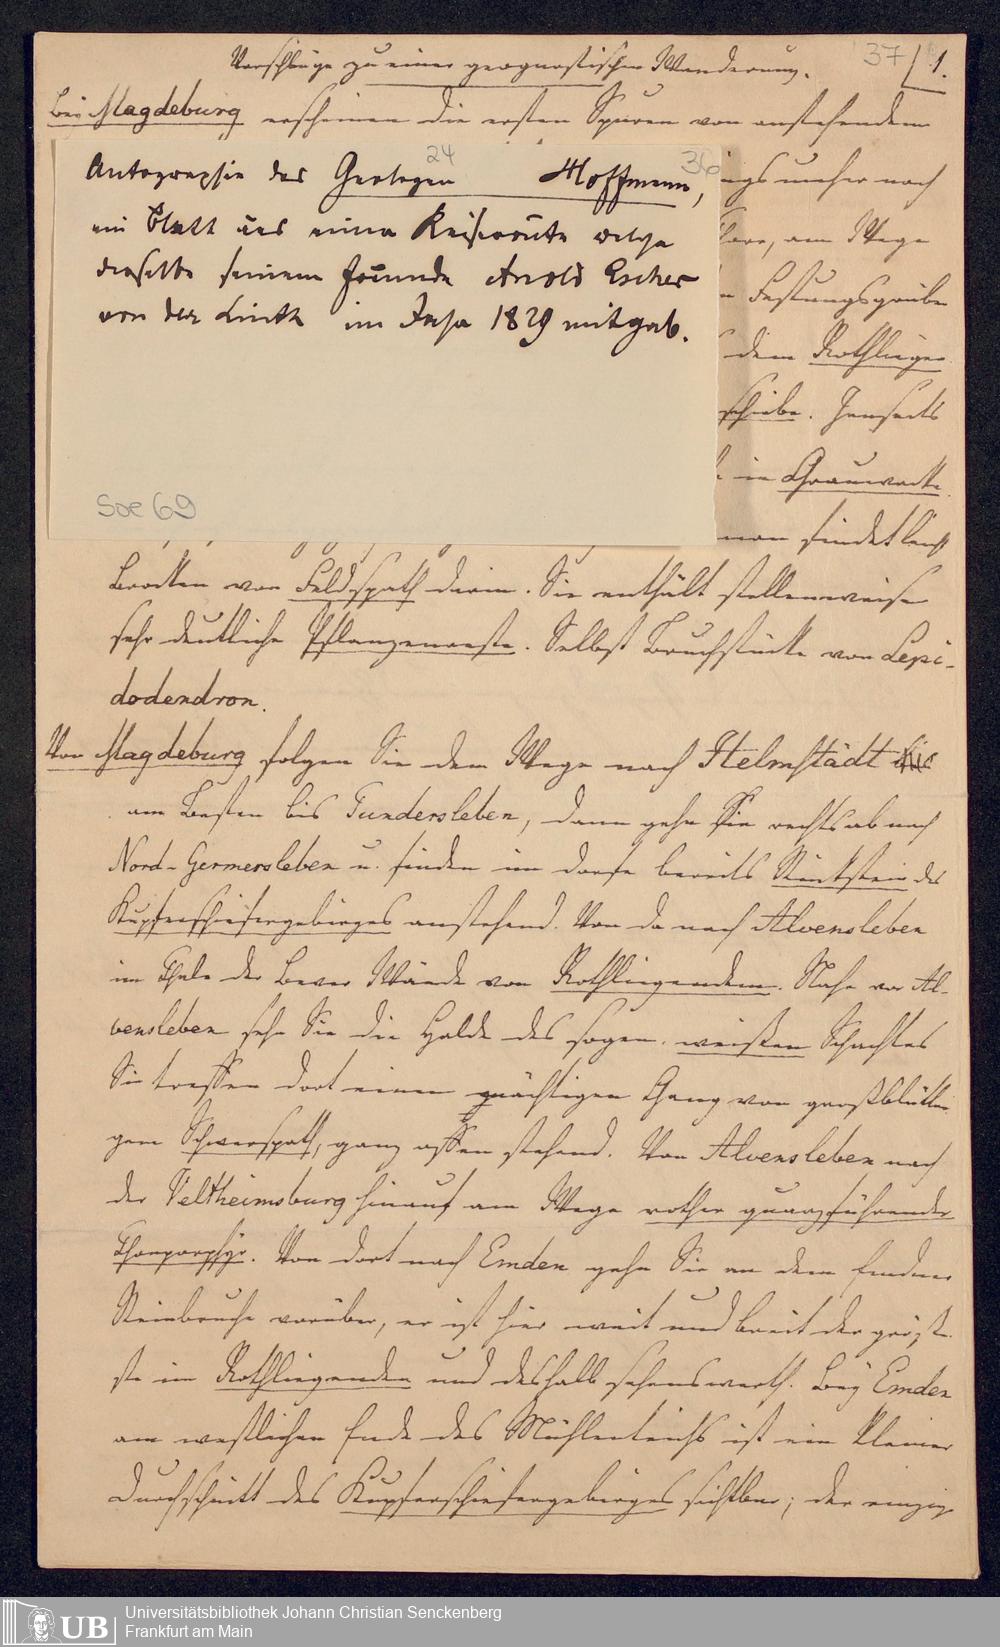 37 1.
Vorschläge zu einer geognostischen Wanderung.
Bei Magdeburg erscheinen die ersten Spuren von anstehendem
24 36
Autographie des Geologen Hoffmann,
ein Blatt aus einer Reiseroute welche
derselbe seinem Freunde Arnold Escher
von der Linth im Jahr 1829 mitgab.
Soe 69
umher nach
am Wege
Festungsgraben
dem Rothliegen
schiebe. Jenseits
in Grauwacke
man findet leicht
Brocken von Feldspath darin. Sie enthält stellenweise
sehr deutliche Pflanzenreste. Selbst Bruchstücke von Lepi-
dodendron.
Von Magdeburg folgen Sie dem Wege nach Helmstädt
am Besten bis Tundersleben, dann gehn Sie rechts ab nach
Nord-Germersleben u. finden im Dorfe bereits Stinkstein des
Kupferschiefergebirges anstehend. Von da nach Alvensleben
im Thale der Bever Wände von Rothliegendem. Nahe vor Al-
vensleben sehn Sie die Halde des sogen. weißen Schachtes
Sie treffen dort einen mächtigen Gang von großblättri
gem Schwerspath, ganz offen stehend. Von Alvensleben nach
der Veltheimsburg hinauf am Wege rother quarzführender
Thonporphyr. Von dort nach Emden gehn Sie an dem Emdner
Steinbruche vorüber, er ist hier weit und breit der größ-
ste im Rothliegenden und deshalb sehenswerth. Bey Emden
am westlichen Ende des Mühlenteichs ist ein kleiner
Durchschnitt des Kupferschiefergebirges sichtbar; der einzige
UB
Universitätsbibliothek Johann Christian Senckenberg
Frankfurt am Main